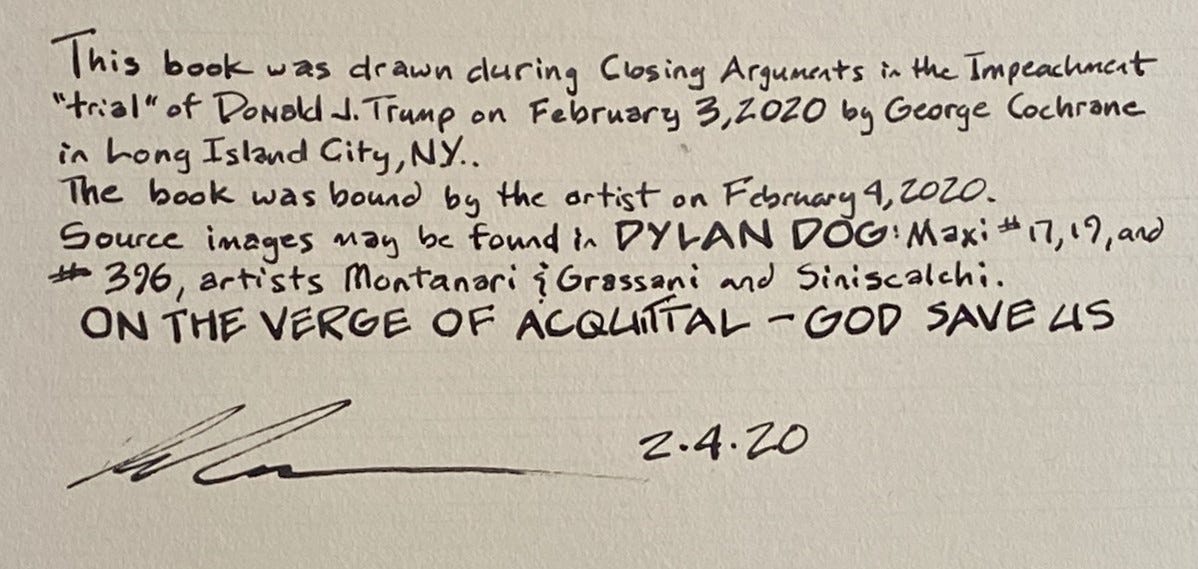 This book was drawn during Closing Arguments in the Impeachment
"trial" of Donald J. Trump on February 3, 2020 by George Cochrane
in Long Island City, NY..
The book was bound by the artist on February 4, 2020.
Source images may be found in DYLAN DOG: Maxi #17, 19, and
#396, artists Montanari & Grassani and Siniscalchi.
ON THE VERGE OF ACQUITTAL – GOD SAVE US
2.4.20